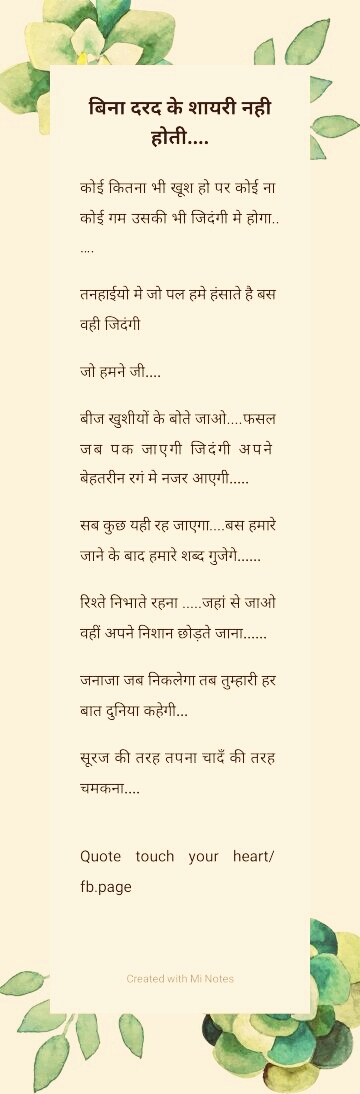 बिना दरद के शायरी नही
होती....
कोई कितना भी खूश हो पर कोई ना
कोई गम उसकी भी जिदंगी मे होगा..
....
तनहाईयो मे जो पल हमे हंसाते है बस
वही जिदंगी
जो हमने जी....
बीज खुशीयों के बोते जाओ....फसल
जब पक जाएगी जिदंगी अपने
बेहतरीन रगं मे नजर आएगी.....
सब कुछ यही रह जाएगा....बस हमारे
जाने के बाद हमारे शब्द गुजेगे......
रिश्ते निभाते रहना .....जहां से जाओ
वहीं अपने निशान छोड़ते जाना......
जनाजा जब निकलेगा तब तुम्हारी हर
बात दुनिया कहेगी...
सूरज की तरह तपना चादँ की तरह
चमकना....
Quote touch your heart/
fb.page
Created with Mi Notes